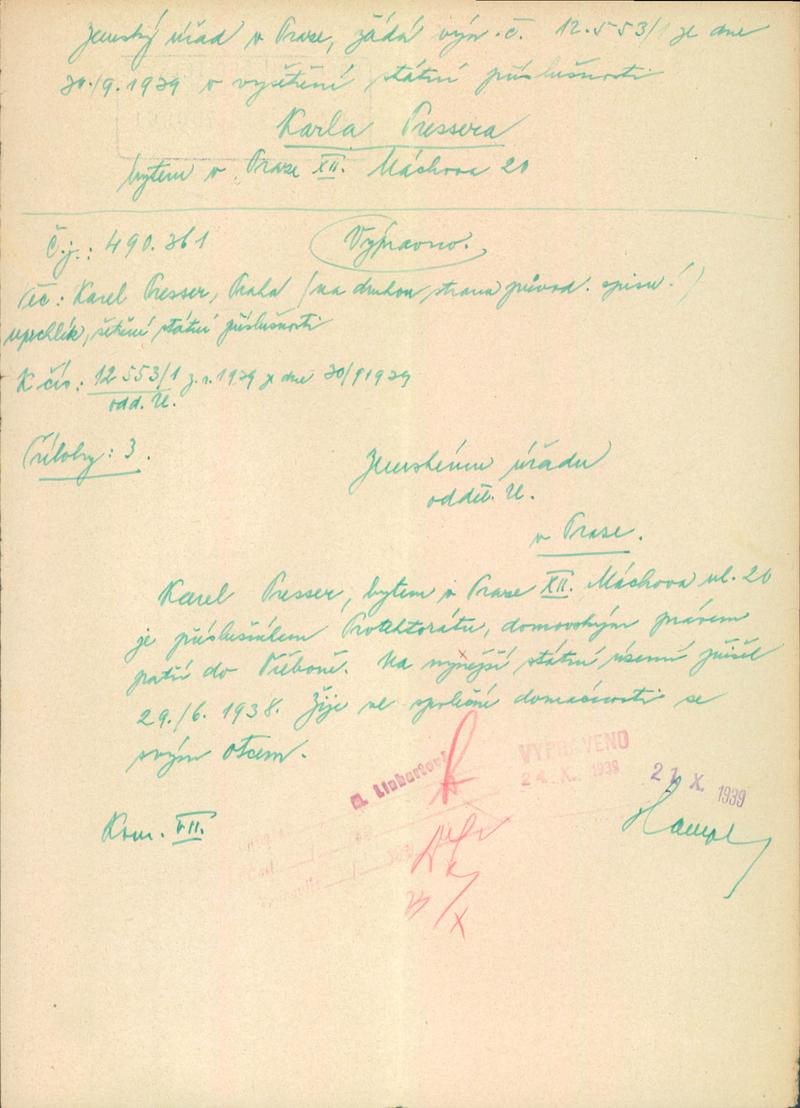 Zemský úřad v Praze, žádá výn. č. 12.553/1 ze dne
30./9.1939 o vyšetření státní příslušnosti
Karla Pressera
bytem v Praze XII. Máchova 20
Č.j.: 490.361 Vypraveno.
Věc: Karel Presser, Praha (na druhou stranu původ. spisu!)
uprchlík, šetření státní příslušnosti
K čís: 12 553/1 z r. 1939 ze dne 30/9 1939
odd. U.
Přílohy: 3.
Zemskému úřadu
odděl. U.
v Praze.
Karel Presser, bytem v Praze XII. Máchova ul. 20
je příslušníkem Protektorátu, domovským právem
patří do Třeboně. Na nynější státní území přišel
29./6. 1938. Žije ve společné domácnosti se
svým otcem.
M. Linhartová
VYPRAVENO
24. X. 1939
21 X. 1939
Kom. VII.
Hampl